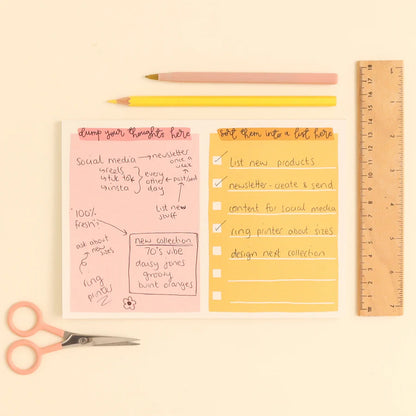 dump your thoughts here
Social media → newsletter
once a
week
↳ reels
↳ tik tok
↳ insta
every
other
day
postcard
list new
stuff
100%
fresh?
ask about
new
sizes
ring
printer
new collection
70's vibe
daisy jones
groovy
burnt oranges
sort them into a list here
list new products
newsletter - create & send
content for social media
ring printer about sizes
design next collection